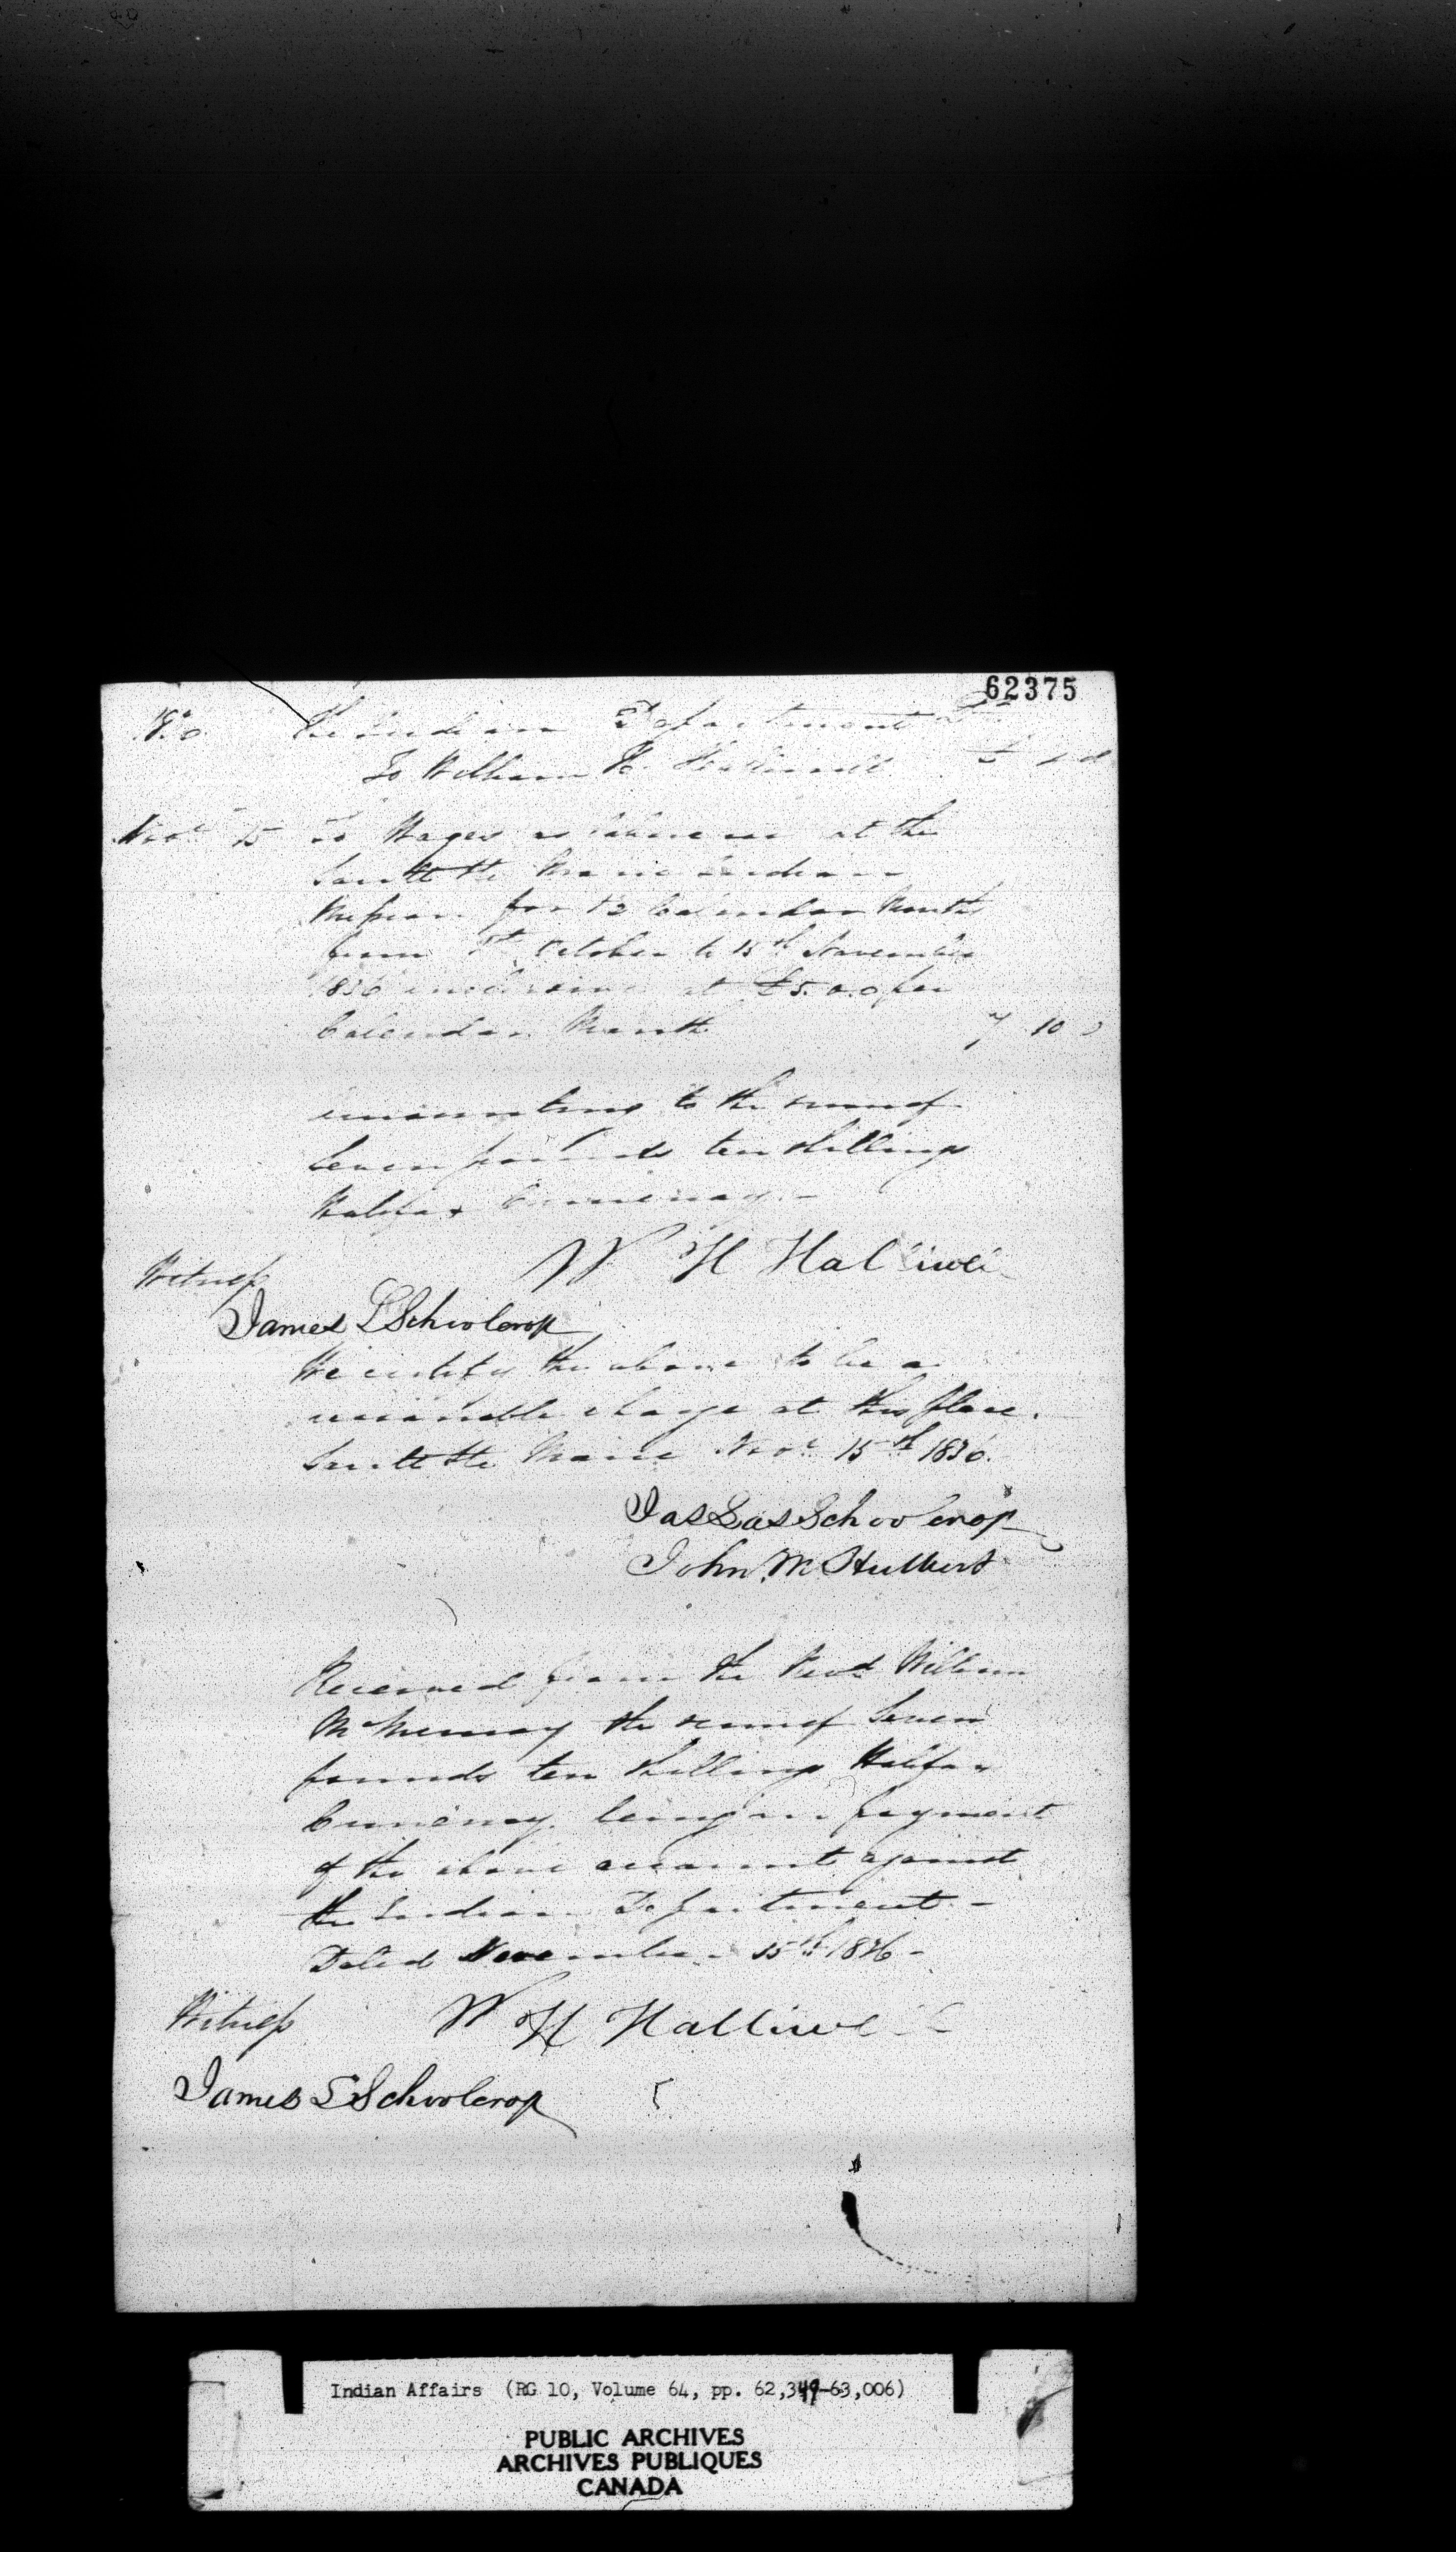 62375
1836 The Indian Department Dr
To William H. Halliwell £ s d
Novr 15 To Wages as labourer at the
Sault Ste Marie Indian
Mission for 1½ Calendar Months
from 1st October to 15th November
1836 inclusive at £5.0.0 per
Calendar Month 7 10 0
amounting to the sum of
Seven pounds ten shillings
Halifax Currency -
W H Halliwell
Witness
James L Schoolcraft
We certify the above to be a
reasonable charge at this place.
Sault Ste Marie Novr 15th 1836.
Jas Schoolcraft
John M Hulbert
Received from the Revd William
McMurray the sum of Seven
pounds ten shillings Halifax
Currency being in payment
of the above account against
the Indian Department -
Dated November 15th 1836 -
Witness W H Halliwell
James L Schoolcraft
Indian Affairs (RG 10, Volume 64, pp. 62,349-63,006)
PUBLIC ARCHIVES
ARCHIVES PUBLIQUES
CANADA